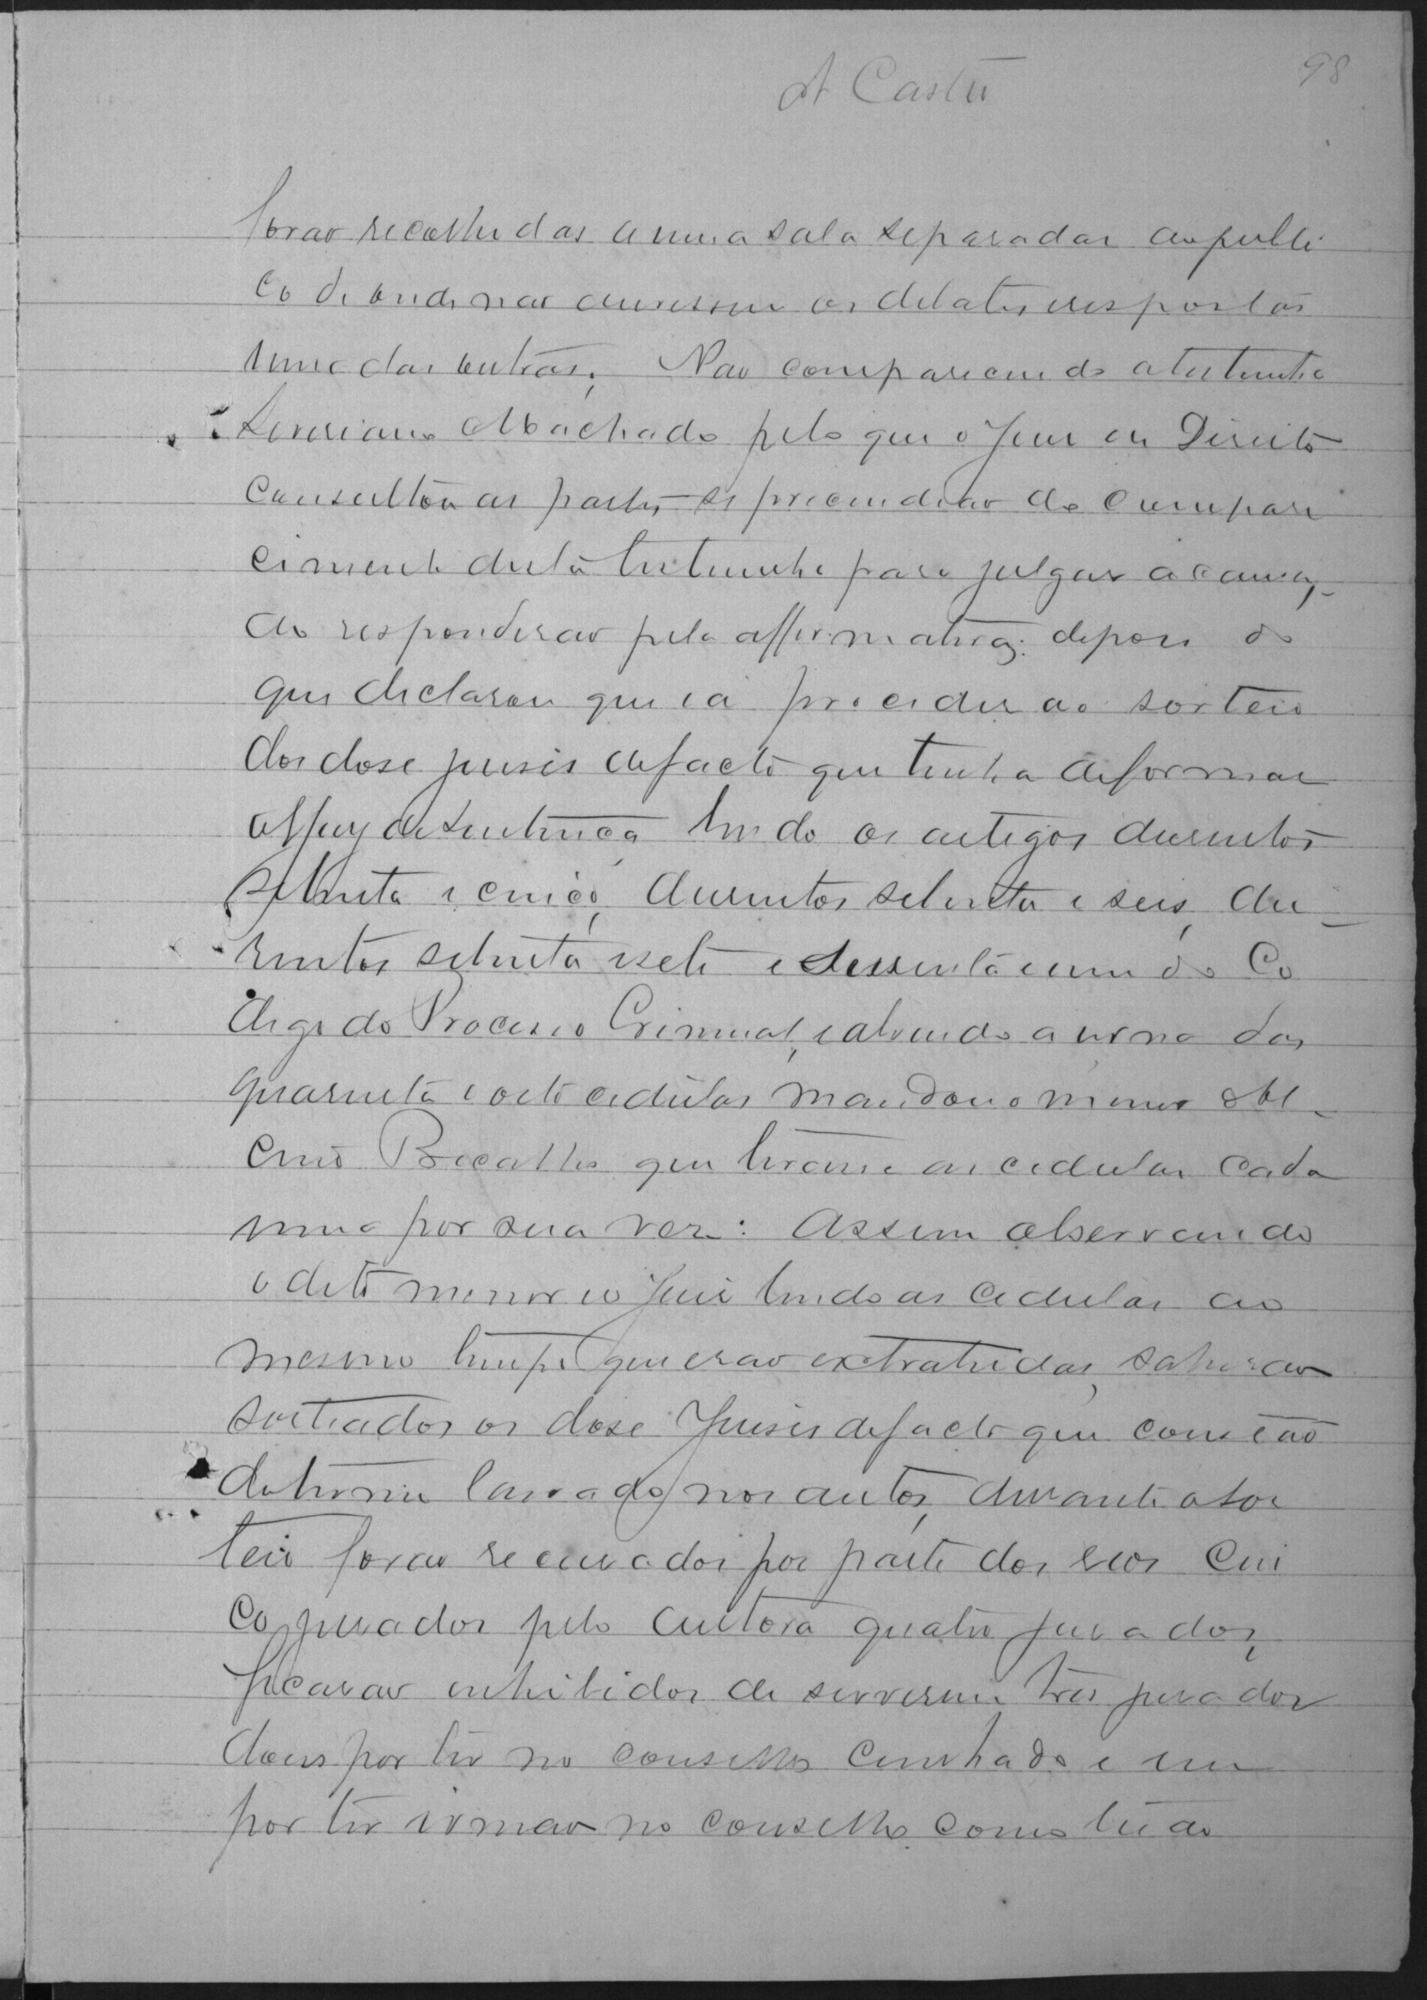 A Castro
98
forao recolhidas a uma sala separadas ao publi
co de onde nao ouvissem os debates e respostas
umas das outras. Nao comparecendo a testemunha
Severiano Machado pelo que o Juiz de Direito
consultou as partes se prescindiao do compare
cimento desta testemunha para julgar a causa,
ao responderao pela affirmativa: depois do
que declarou que ia proceder ao sorteio
dos dose juises de facto que tenha de formar
o Jury de sentença lendo os artigos dusentos
setenta e cinco, dusentos setenta e seis, du
sentos setenta e sete e sessenta e um do Co
digo do Processo Criminal, e abrindo a urna das
quarenta e oito cedulas mandou o menor
que tirasse as cedulas cada
uma por sua vez: Assim observando
o dito menor e o Juiz lendo as cedulas ao
mesmo tempo que erao extrahidas, sahirao
sorteados os dose Juises de facto que constao
do termo lavrado nos autos, durante o sor
teio forao recusados por parte dos reos cin
co jurados pelo autora quatro jurados,
ficarao inhibidos de servirem tres jurados
dous por ter no conselho cunhado e um
por ter irmao no conselho como tudo